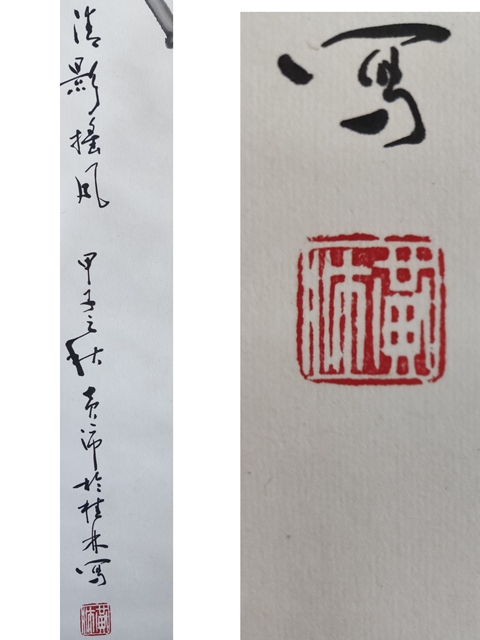 清影搖風 甲子之秋 黄沛於桂林寫
黄沛
寫
黄沛